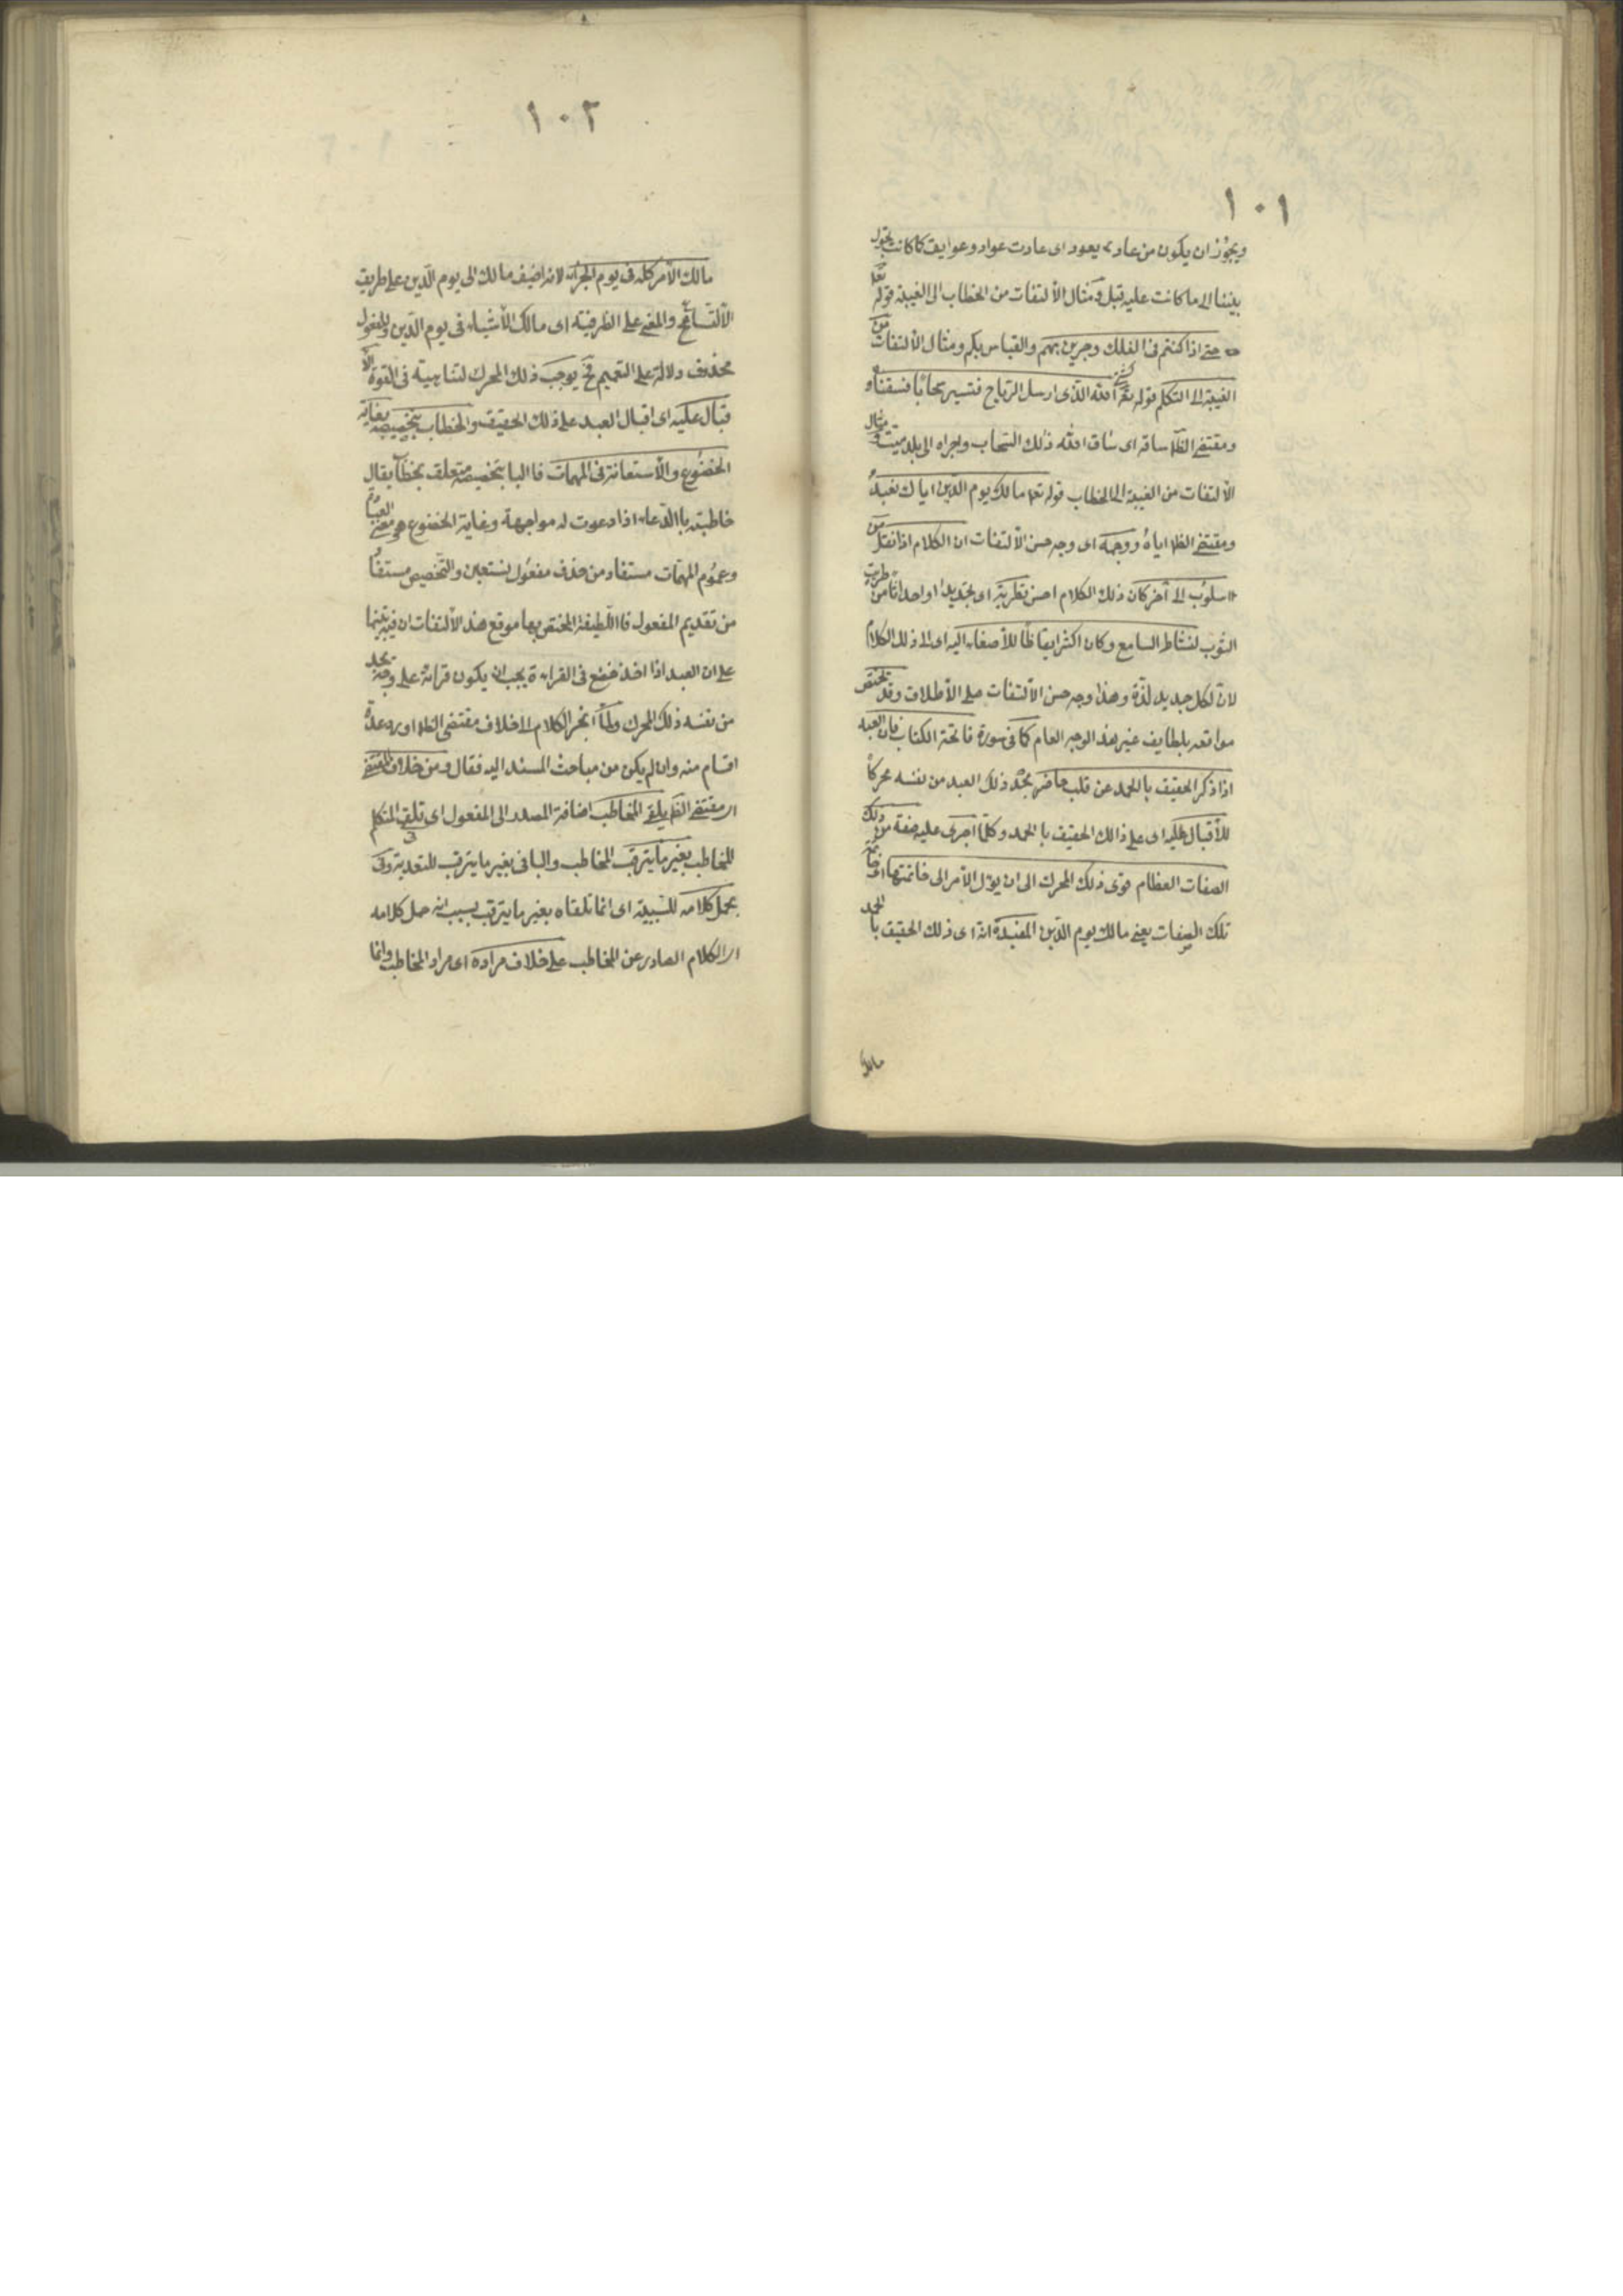 ١٠١
ويجوز ان يكون من عاد يعود اى عادت عواد وعوايق كما كانت تحول
بيننا الى ما كانت عليه قبل ومثال الألتفات من الخطاب الى الغيبة قوله تعا
حتى اذا كنتم فى الفلك وجرين بهم والقياس بكم ومثال الألتفات من
الغيبة الى التكلم قوله تع الله الذى ارسل الرياح فتثير سحابا فسقناه
ومقتضى الظا ساقه اى ساق الله ذلك السحاب واجراه الى بلد ميت ومثال
الألتفات من الغيبة الى الخطاب قوله تعا مالك يوم الدين اياك نعبد
ومقتضى الظا اياه ووجهه اى وجه حسن الألتفات ان الكلام اذا نقل من
اسلوب الى آخر كان ذلك الكلام احسن تطرية اى تجديدا او احداثا من طريت
الثوب لنشاط السامع وكان اكثر ايقاظا للأصغاء اليه اى الى ذلك الكلام
لان لكل جديد لذة وهذا وجه حسن الألتفات على الأطلاق وقد تختص
مواقعه بلطايف غير هذا الوجه العام كما فى سورة فاتحة الكتاب فان العبد
اذا ذكر الحقيق بالحمد عن قلب حاضر يجد ذلك العبد من نفسه محركا
للأقبال عليه اى على ذالك الحقيق با الحمد وكلما اجرى عليه صفة من تلك
الصفات العظام قوى ذلك المحرك الى ان يؤل الأمر الى خاتمتها اى خاتمة
تلك الصفات يعنى مالك يوم الدين المفيدة انه اى ذلك الحقيق با الحمد
مالك
١٠٢
مالك الأمر كله فى يوم الجزاء لانه اضيف مالك الى يوم الدين على طريق
الأتساع والمعنى على الظرفية اى مالك الأشياء فى يوم الدين والمفعول
محذوف دلالة على التعميم فح يوجب ذلك المحرك لتناهيه فى القوة الأ
قبال عليه اى اقبال العبد على ذلك الحقيق والخطاب بتخصيصه بغاية
الخضوع والأستعانة فى المهمات فا البا بتخصيصه متعلق بخطاب يقال
خاطبته با الدعاء اذا دعوت له مواجهة وغاية الخضوع هو معنى العبادة
وعموم المهمات مستفاد من حذف مفعول نستعين والتخصيص مستفا
من تقديم المفعول فا اللطيفة المختص بها موقع هذا الألتفات ان فيه تنبيها
على ان العبد اذا اخذ فى القراءة يجب ان يكون قرائته على وجه يجد
من نفسه ذلك المحرك ولما انجر الكلام الى خلاف مقتضى الظا اورد عدة
اقسام منه وان لم يكن من مباحث المسند اليه فقال ومن خلاف المقتضى
اى مقتضى الظا تلقى المخاطب اضافة المصدر الى المفعول اى تلقى المتكلم
للمخاطب بغير ما يترقب المخاطب والبا فى بغير ما يترقب للتعدية وفى
بحمل كلامه للسببية اى انما تلقاه بغير ما يترقب بسبب انه حمل كلامه
اى الكلام الصادر عن المخاطب على خلاف مراده اى مراد المخاطب وانما